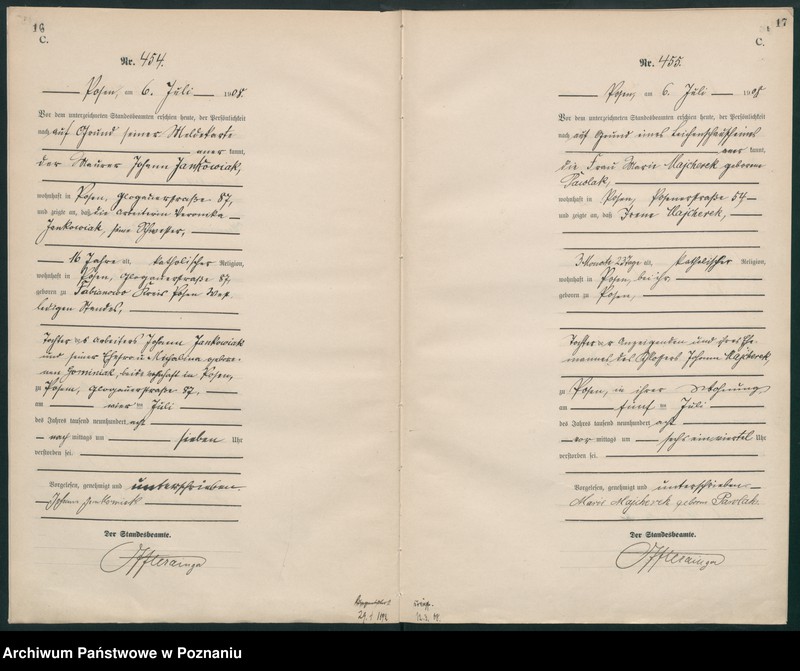 16
C.
Nr. 454.
Posen, am 6. Juli 1908.
Vor dem unterzeichneten Standesbeamten erschien heute, der Persönlichkeit
nach auf Grund seiner Meldekarte
kannt,
der Maurer Johann Jankowiak,
wohnhaft in Posen, Glogauerstraße 87,
und zeigte an, daß die Arbeiterin Veronika
Jankowiak, seine Schwester,
16 Jahre alt, katholischer Religion,
wohnhaft in Posen, Glogauerstraße 87,
geboren zu Fabianowo Kreis Posen West
ledigen Standes,
Tochter des Arbeiters Johann Jankowiak
und seiner Ehefrau Michalina gebore-
nen, beide wohnhaft in Posen,
zu Posen, Glogauerstraße 87,
am vier ten Juli
des Jahres tausend neunhundert acht
nach mittags um sieben Uhr
verstorben sei.
Vorgelesen, genehmigt und unterschrieben
Johann Jankowiak
Der Standesbeamte.
17
C.
Nr. 455.
Posen, am 6. Juli 1908
Vor dem unterzeichneten Standesbeamten erschien heute, der Persönlichkeit
nach auf Grund eines Leichenschauscheines
kannt,
die Frau Marie Majcherek geborene
Pawlak,
wohnhaft in Posen, Posenerstraße 54
und zeigte an, daß Irene Majcherek,
3 Monate 23 Tage alt, katholischer Religion,
wohnhaft in Posen, bei ihr
geboren zu Posen,
Tochter der Anzeigenden und ihres Ehe-
mannes, des Schlossers Johann Majcherek,
zu Posen, in ihrer Wohnung
am fünf ten Juli
des Jahres tausend neunhundert acht
vor mittags um sechs einviertel Uhr
verstorben sei.
Vorgelesen, genehmigt und unterschrieben
Marie Majcherek geborene Pawlak
Der Standesbeamte.
Archiwum Państwowe w Poznaniu